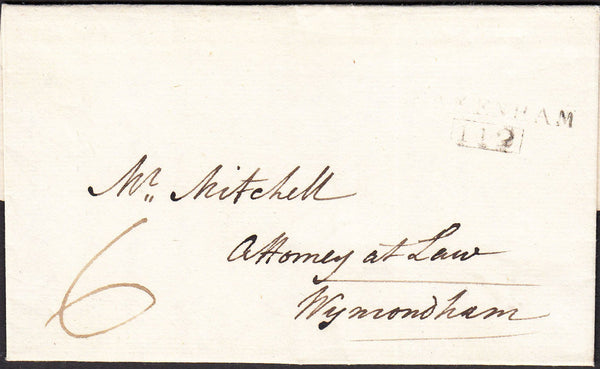 112
Mr. Mitchell
Attorney at Law
Wymondham
6